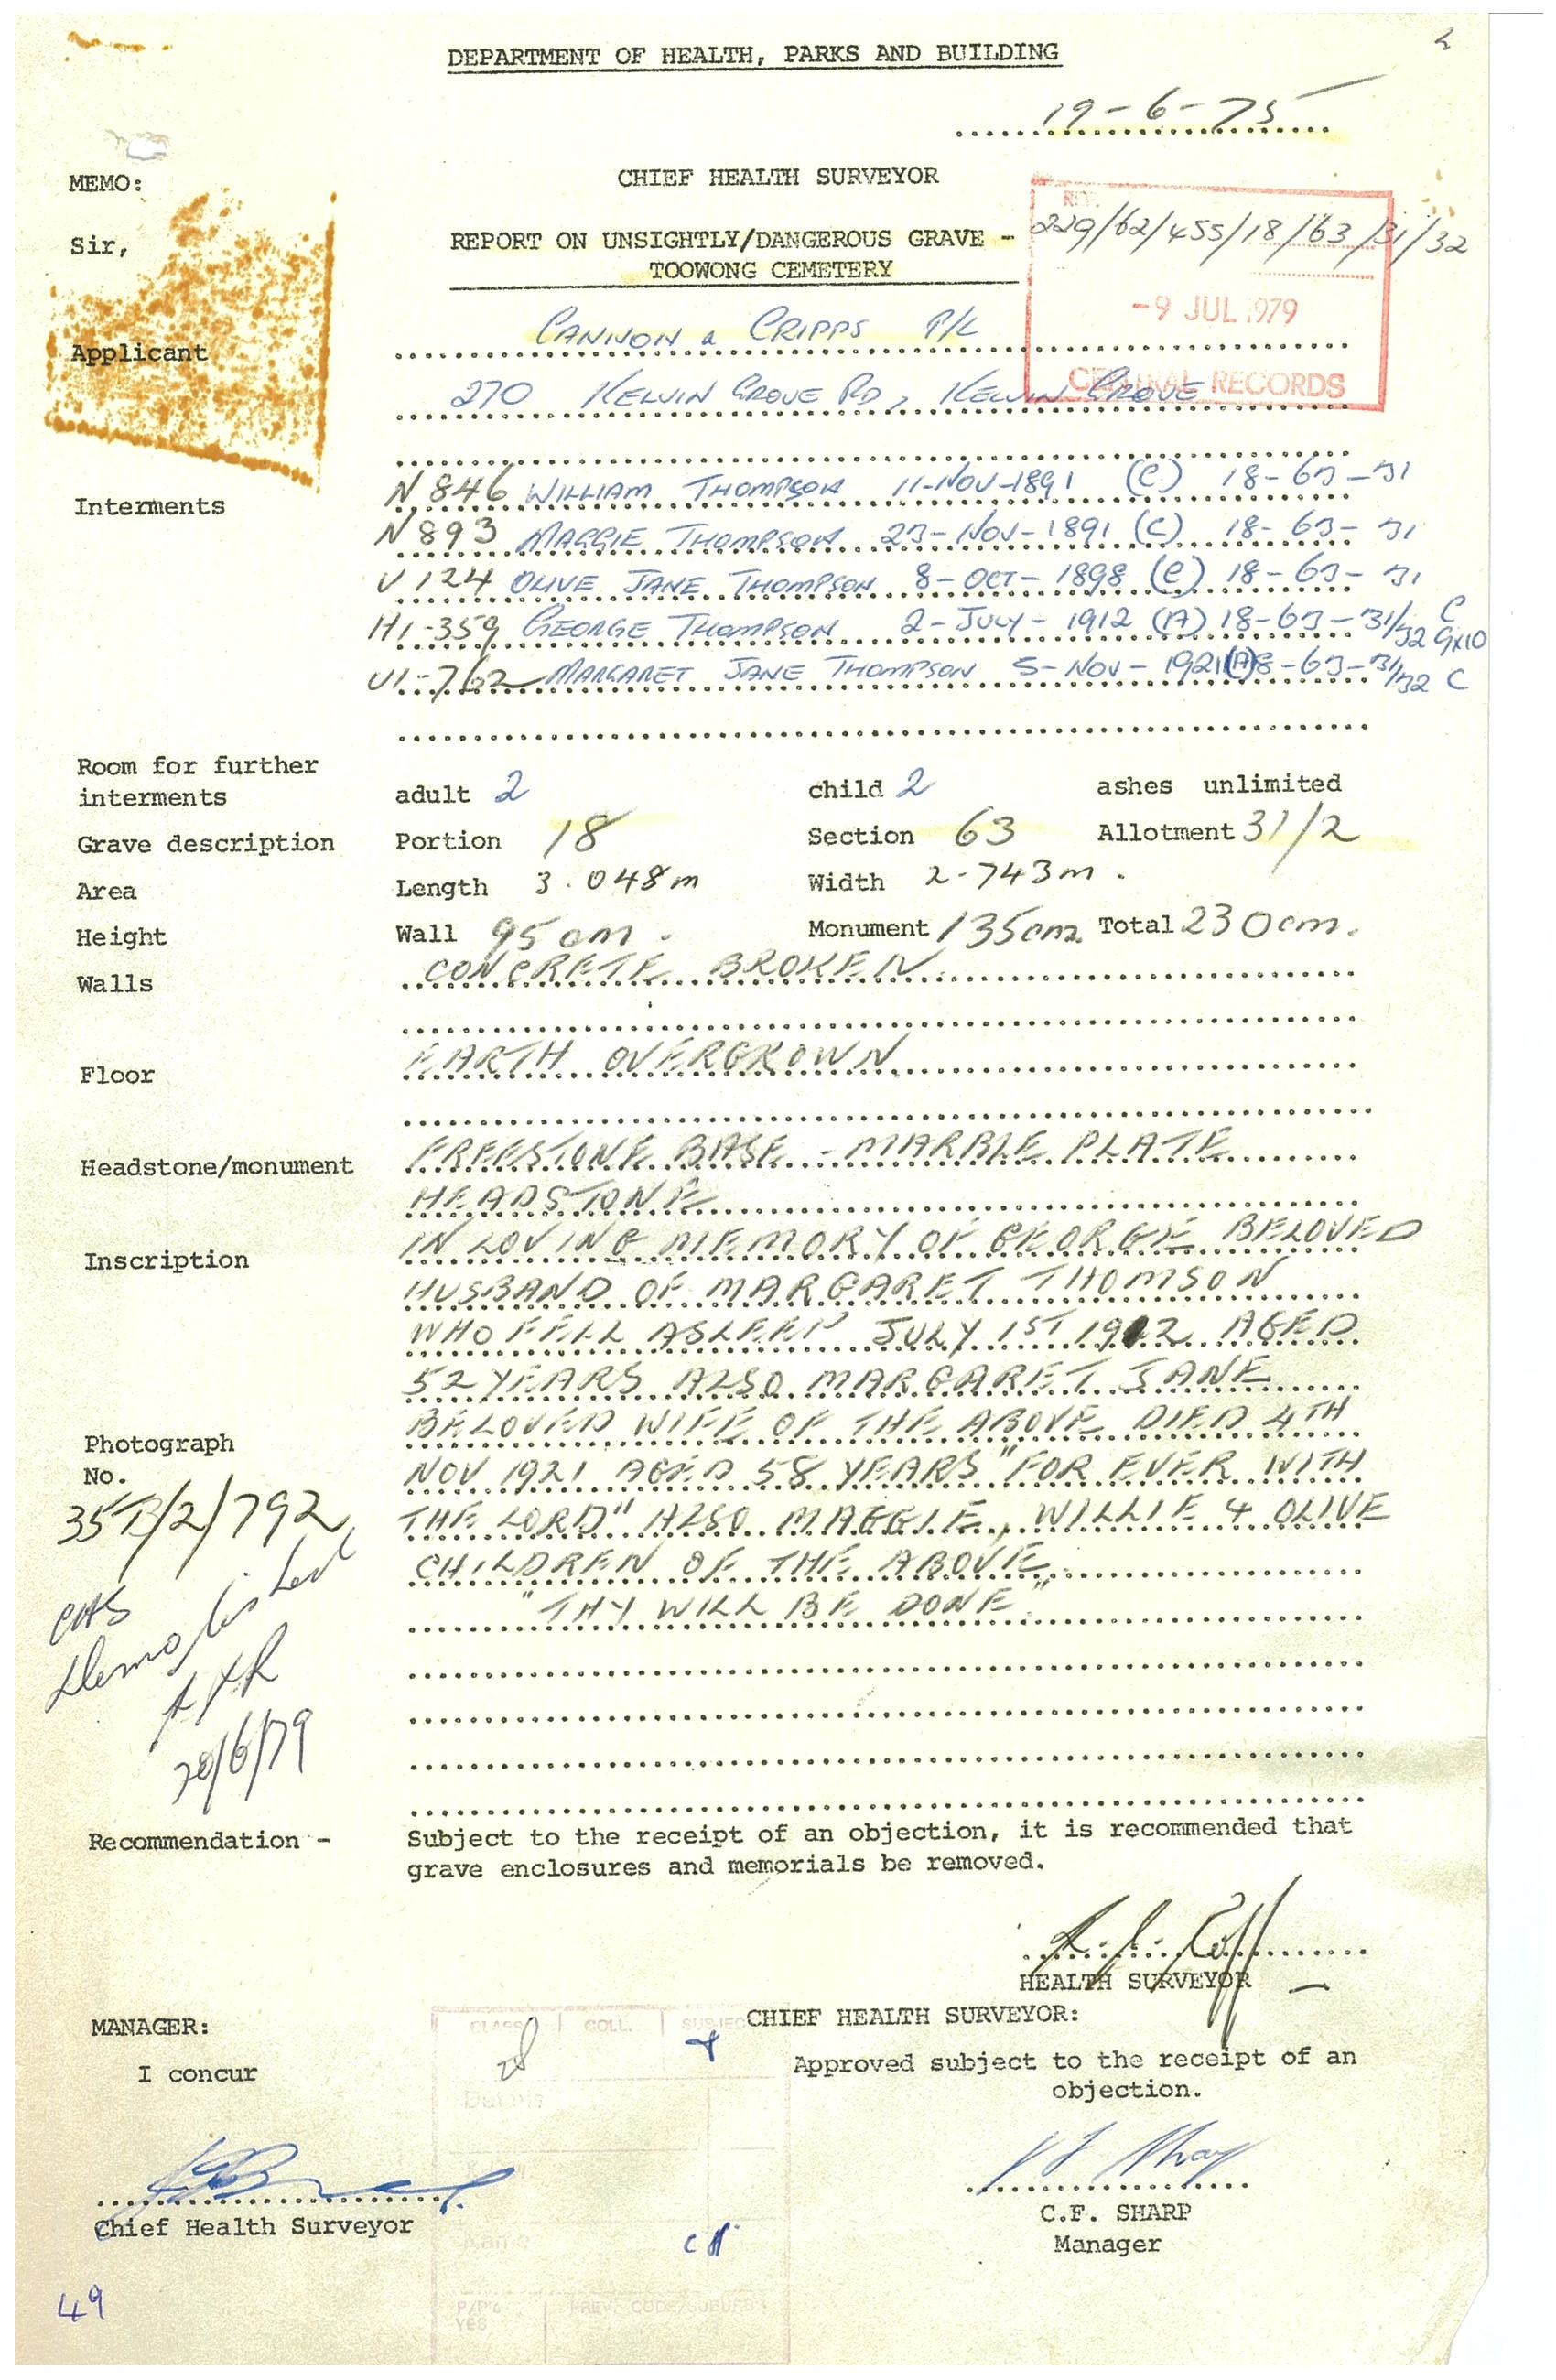 DEPARTMENT OF HEALTH, PARKS AND BUILDING
19-6-75
MEMO:
CHIEF HEALTH SURVEYOR
Sir,
REPORT ON UNSIGHTLY/DANGEROUS GRAVE -
TOOWONG CEMETERY
229/62/455/18/63/31/32
-9 JUL 1979
CENTRAL RECORDS
Applicant
CANNON & CRIPPS P/L
270 KELVIN GROVE RD, KELVIN GROVE
Interments
N 846 WILLIAM THOMPSON 11-NOV-1891 (C) 18-63-31
N 893 MAGGIE THOMPSON 23-NOV-1891 (C) 18-63-31
U 124 OLIVE JANE THOMPSON 8-OCT-1898 (C) 18-63-31
H1-359 GEORGE THOMPSON 2-JULY-1912 (A) 18-63-31/32 C 9x10
U1-762 MARGARET JANE THOMPSON 5-NOV-1921 (A) 18-63-31/32 C
Room for further
interments adult 2 child 2 ashes unlimited
Grave description Portion 18 Section 63 Allotment 31/2
Area Length 3.048m Width 2.743m.
Height Wall 95cm. Monument 135cm. Total 230cm.
Walls CONCRETE BROKEN
Floor EARTH OVERGROWN
Headstone/monument FREESTONE BASE - MARBLE PLATE
HEADSTONE
Inscription IN LOVING MEMORY OF GEORGE BELOVED
HUSBAND OF MARGARET THOMSON
WHO FELL ASLEEP JULY 1ST 1912 AGED
52 YEARS ALSO MARGARET JANE
BELOVED WIFE OF THE ABOVE DIED 4TH
NOV 1921 AGED 58 YEARS "FOR EVER WITH
THE LORD" ALSO MAGGIE, WILLIE & OLIVE
CHILDREN OF THE ABOVE.
"THY WILL BE DONE"
Photograph
No.
35 /2/792
CHS
Demolished
20/6/79
Recommendation - Subject to the receipt of an objection, it is recommended that
grave enclosures and memorials be removed.
HEALTH SURVEYOR
MANAGER:
CHIEF HEALTH SURVEYOR:
CLASS COLL. SUBJECT
I concur
Approved subject to the receipt of an
objection.
Chief Health Surveyor
C.F. SHARP
Manager
PREV. CODE/SUBURB
YES
49